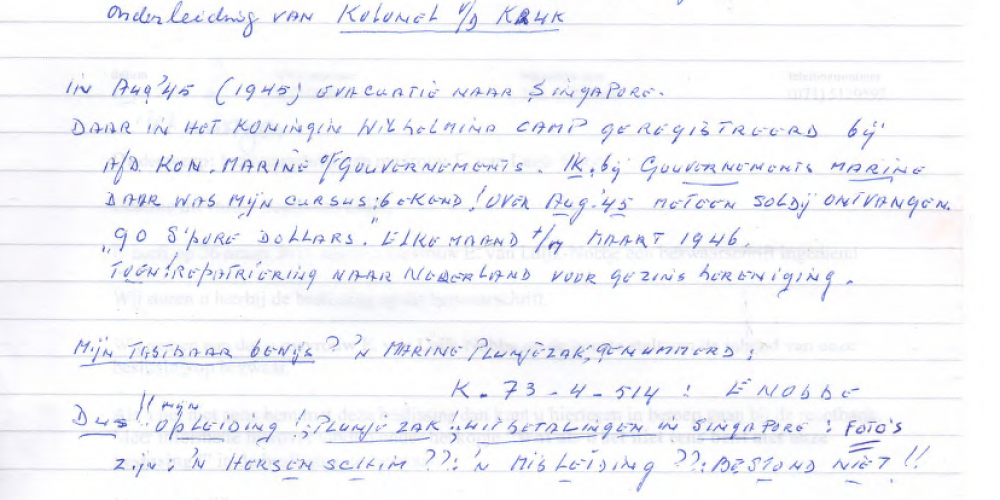 onderleiding VAN KOLONEL v/d KRUK
IN Aug '45 (1945) EVACUATIE NAAR SINGAPORE.
DAAR IN HET KONINGIN WILHELMINA CAMP GEREGISTREERD bij
A/D. KON. MARINE of GOUVERNEMENTS. IK, bij GOUVERNEMENTS MARINE
DAAR WAS MIJN CURSUS; BEKEND! OVER Aug. '45 METEEN SOLDIJ ONTVANGEN.
„90 S'PORE DOLLARS." ELKE MAAND t/m MAART 1946.
TOEN! REPATRIERING NAAR NEDERLAND VOOR GEZINS HERENIGING.
MIJN TASTBAAR BEWIJS? 'N MARINE PLUNJEZAK, GENUMMERD:
K. 73-4-514 : E NOBBE
DUS !! MIJN OPLEIDING!; PLUNJE ZAK: UITBETALINGEN IN SINGAPORE: FOTO'S
ZIJN: 'N HERSEN SCHIM ??: 'N MISLEIDING ??: BESTOND NIET!!